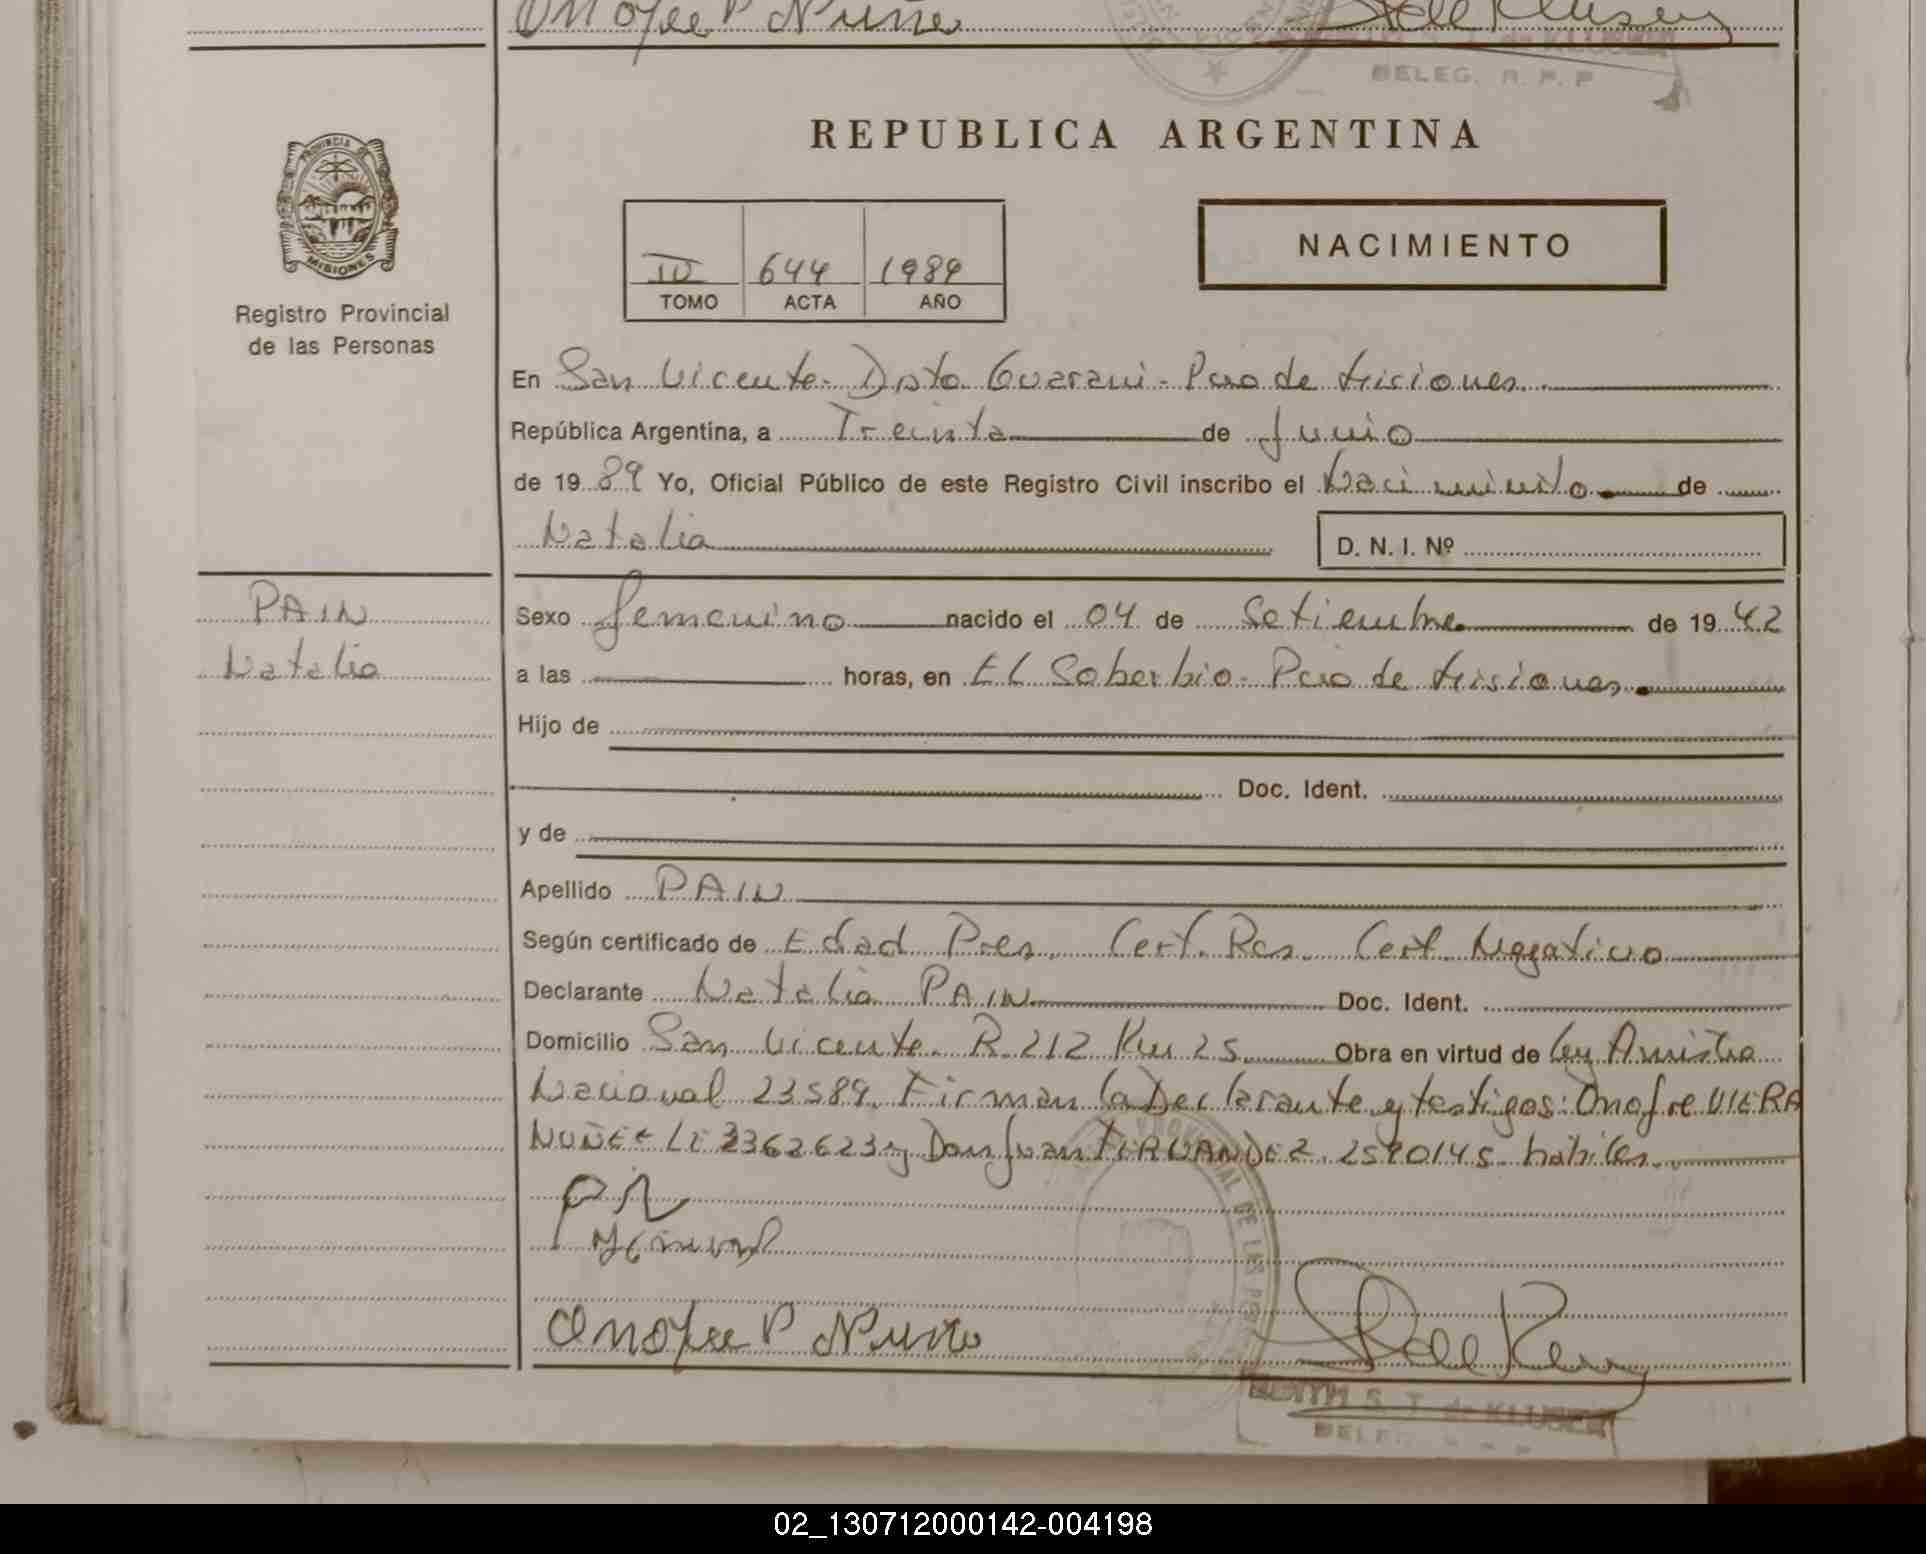 Onofre P Nuñe
de KLUSEN
DELEG. R. P. P
REPUBLICA ARGENTINA
PROVINCIA DE
MISIONES
Registro Provincial
de las Personas
NACIMIENTO
IV 644 1989
TOMO ACTA AÑO
En San Vicente. Dpto Guarani. Pcia de Misiones.
República Argentina, a Treinta de Junio
de 1989 Yo, Oficial Público de este Registro Civil inscribo el Nacimiento de
Natalia
D. N. I. Nº
PAIN
Natalia
Sexo femenino nacido el 04 de Setiembre de 1942
a las horas, en El Soberbio. Pcia de Misiones.
Hijo de
Doc. Ident.
y de
Apellido PAIN
Según certificado de Edad Pres. Cert. Res. Cert. Negativo
Declarante Natalia PAIN Doc. Ident.
Domicilio San Vicente. R. 212 Km 25 Obra en virtud de Ley Amistia
Nacional 23589. Firman la Declarante y testigos: Onofre VIERA
NUÑEZ LE 3362623 y Don Juan FERNANDEZ. 2590145 habiles.
Onofre P Nuñe
EDITH S. T. de KLUSEN
DELEG. R. P. P
02_130712000142-004198